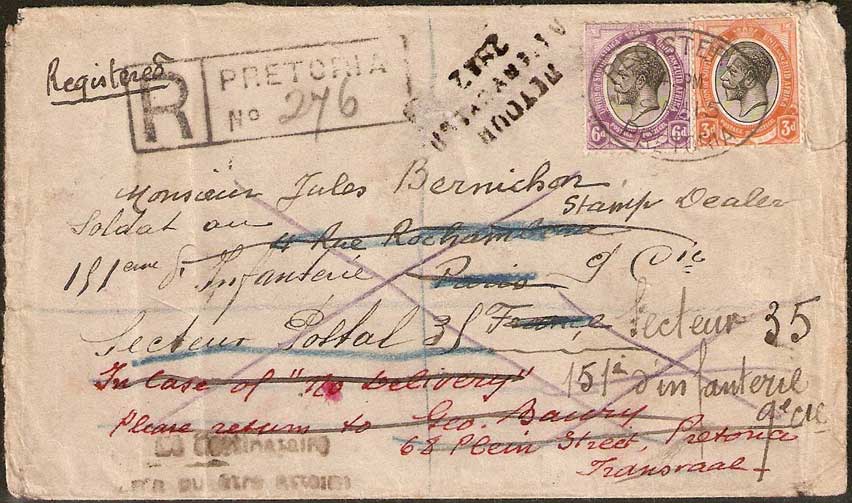 Registered
R
PRETORIA
No 276
RETOUR
À L'ENVOYEUR
6d 6d
3d 3d
Monsieur Jules Bernichon
Stamp Dealer
Soldat au
4 Rue Rochambeau
151eme d'Infanterie
Paris
9 Cie
Secteur Postal 35
France
Secteur 35
151e d'infanterie
9e Cie
In Case of "No Delivery"
Please return to Geo. Bawry
68 Plein Street, Pretoria
Transvaal
Le Destinataire
n'a pu être atteint